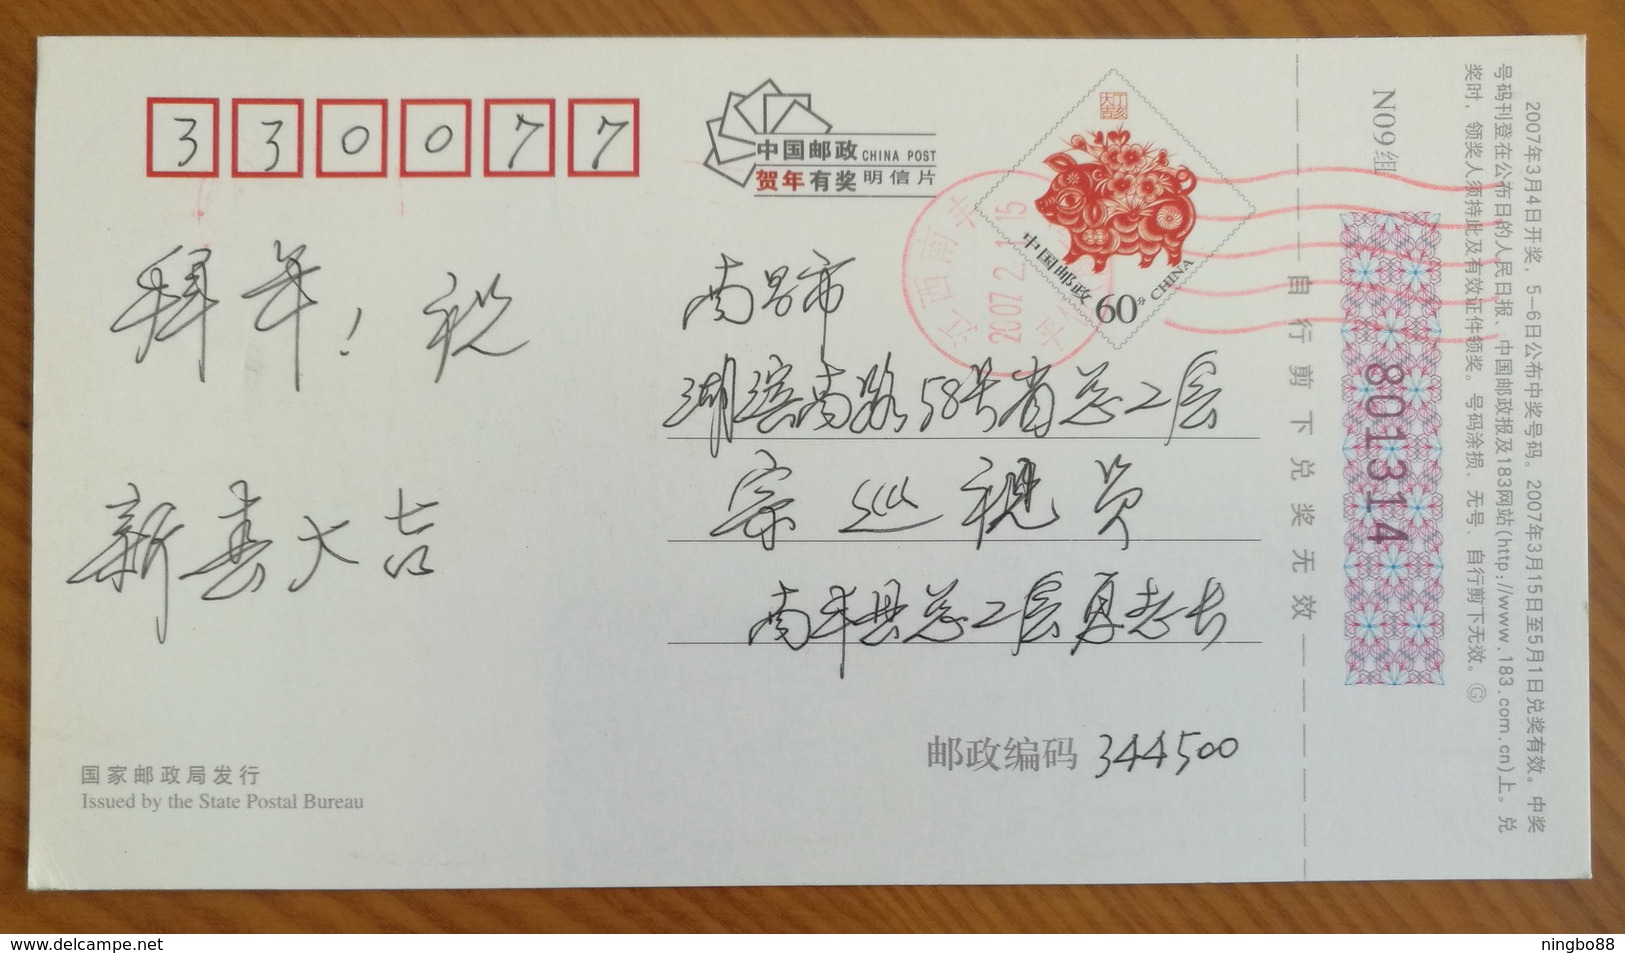 330077
中国邮政 CHINA POST
贺年有奖 明信片
丁亥大吉
中国邮政 60分 CHINA
江西南丰
2007.2.1.15
拜年！祝
新春大吉
南昌市
湖滨南路58号省总工会
宗巡视员
南丰县总工会夏志长
邮政编码 344500
国家邮政局发行
Issued by the State Postal Bureau
自行剪下兑奖无效
N09组
801314
2007年3月4日开奖，5-6日公布中奖号码。2007年3月15日至5月1日兑奖有效。中奖
号码刊登在公布日的人民日报、中国邮政报及183网站(http://www.183.com.cn)上。兑
奖时，领奖人须持此及有效证件领奖。号码涂损、无号、自行剪下无效。Ⓖ
www.delcampe.net
ningbo88